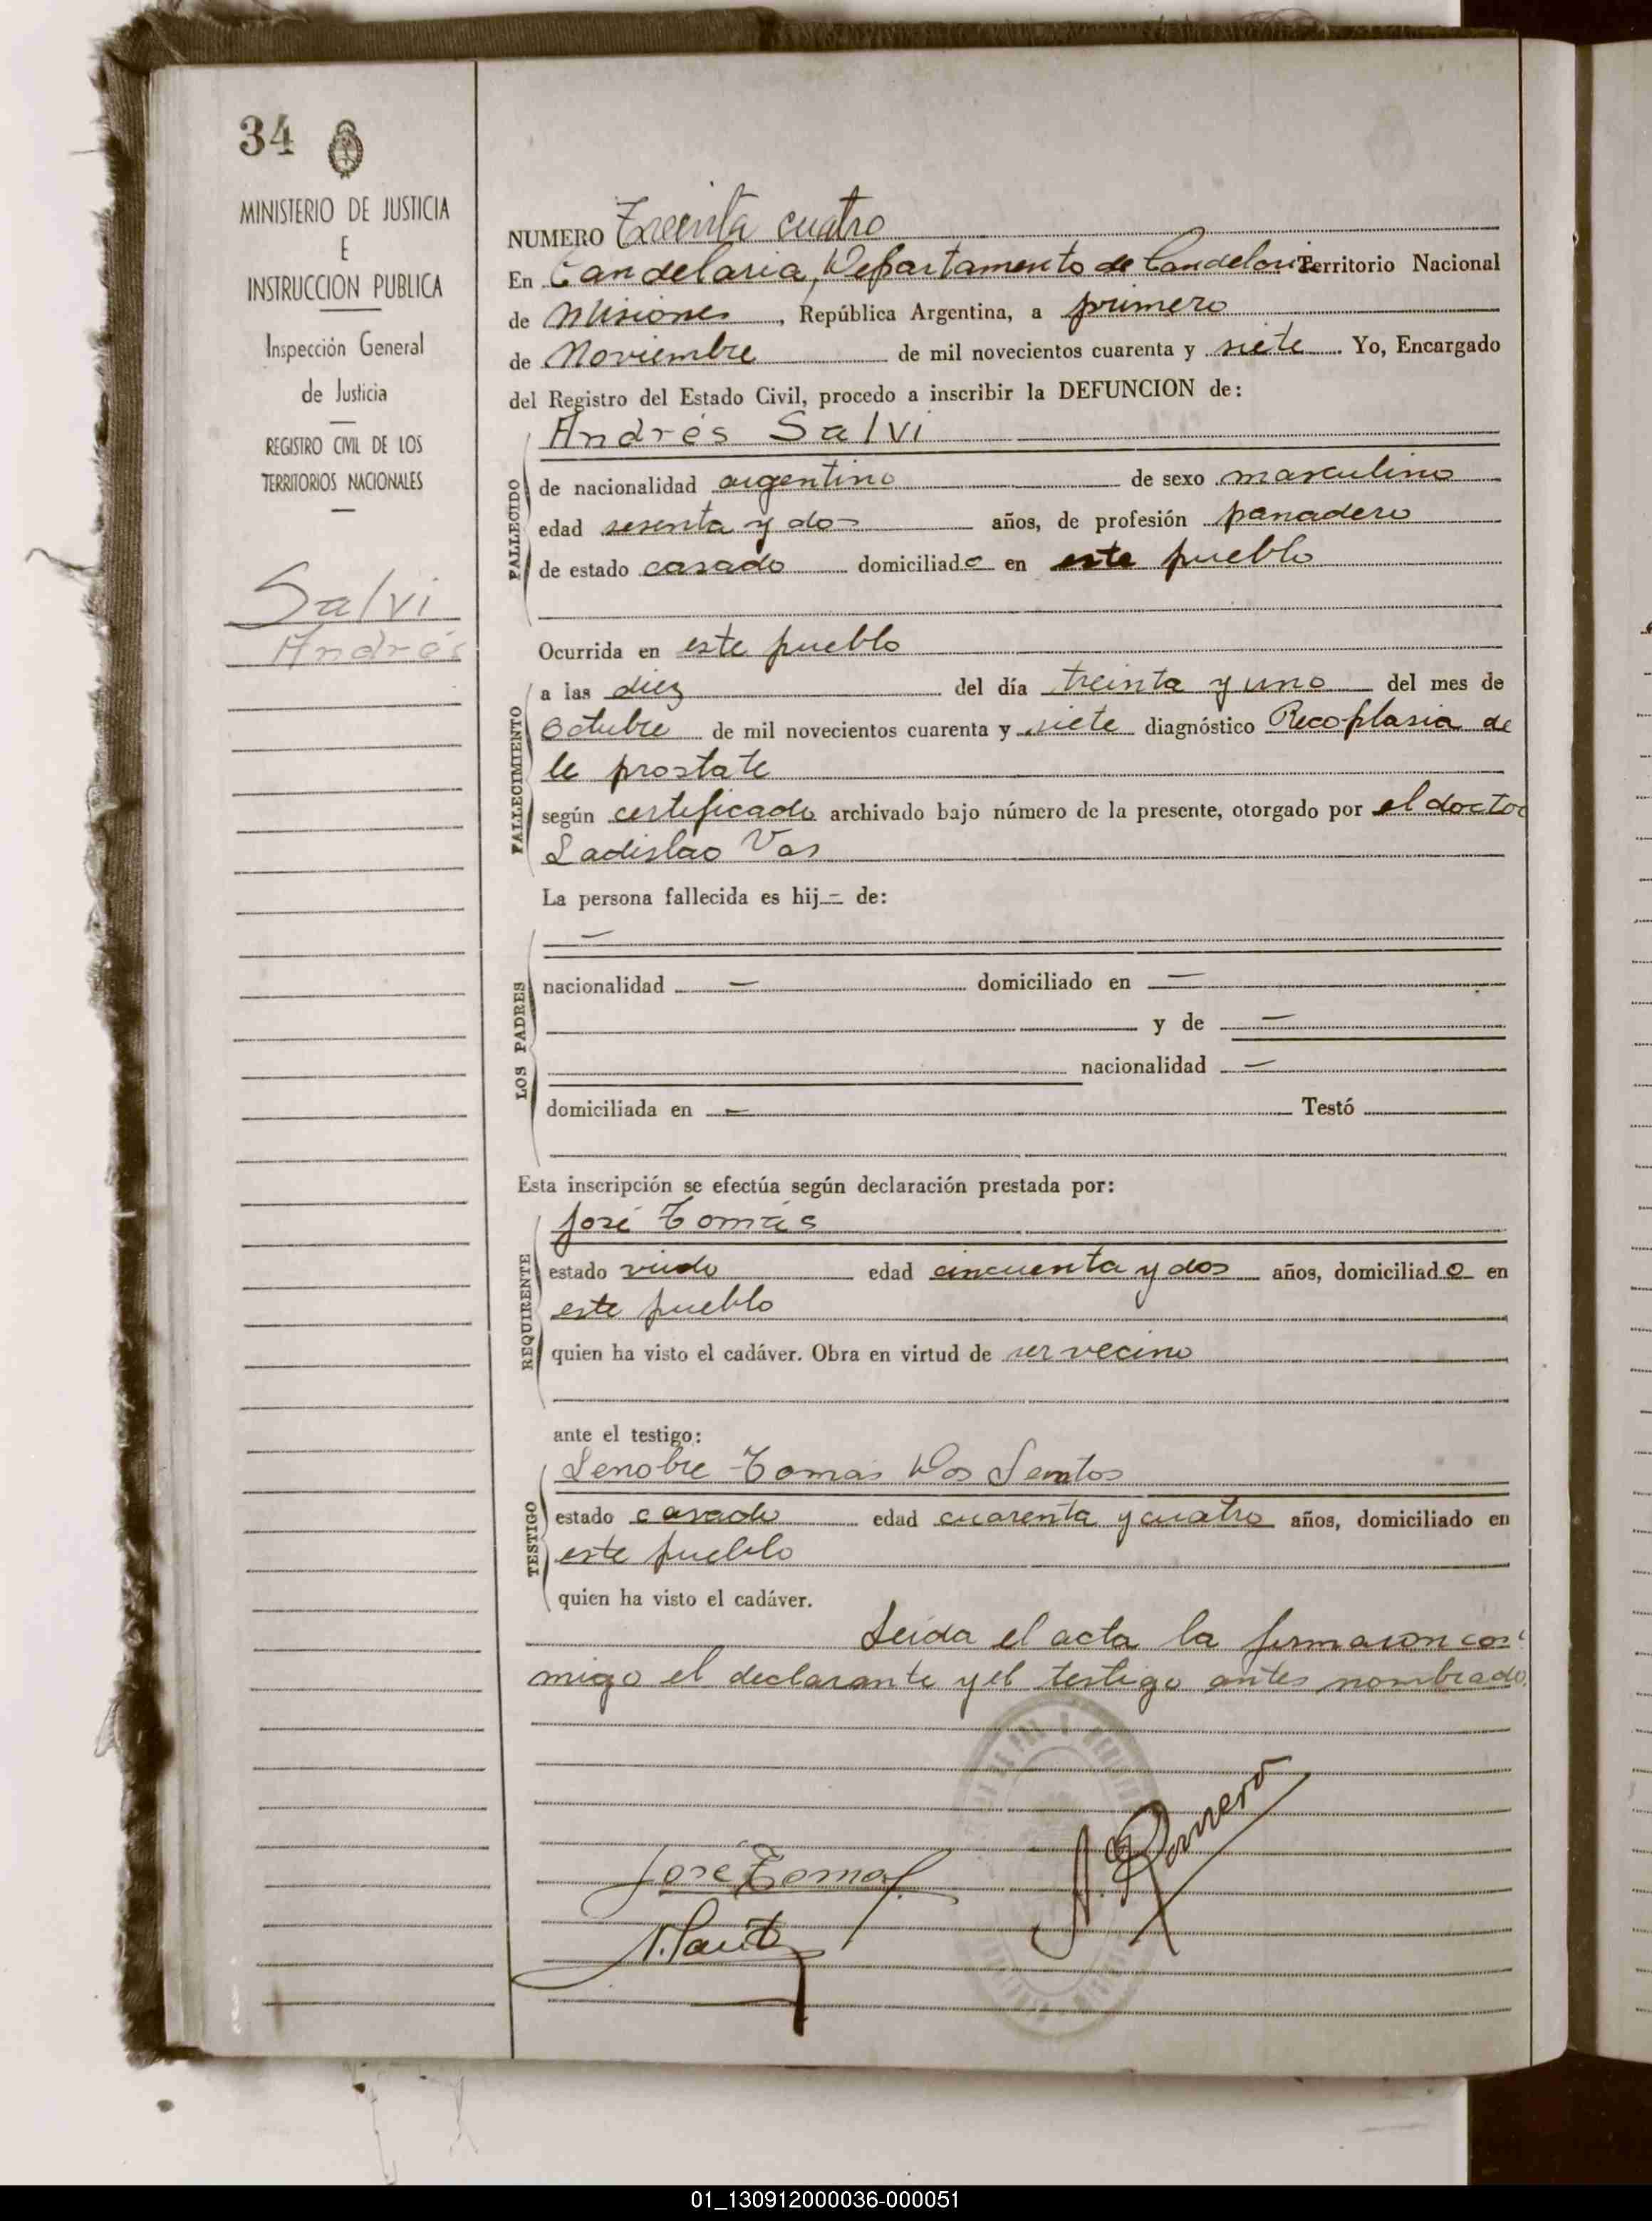 34
MINISTERIO DE JUSTICIA
E
INSTRUCCION PUBLICA
Inspección General
de Justicia
REGISTRO CIVIL DE LOS
TERRITORIOS NACIONALES
Salvi
Andrés
NUMERO Treinta cuatro
En Candelaria, Departamento de Candelaria Territorio Nacional
de Misiones, República Argentina, a primero
de Noviembre de mil novecientos cuarenta y siete. Yo, Encargado
del Registro del Estado Civil, procedo a inscribir la DEFUNCION de:
Andrés Salvi
FALLECIDO
de nacionalidad argentino de sexo masculino
edad sesenta y dos años, de profesión panadero
de estado casado domiciliado en este pueblo
Ocurrida en este pueblo
FALLECIMIENTO
a las diez del día treinta y uno del mes de
Octubre de mil novecientos cuarenta y siete diagnóstico Recoplasia de
le prostate
según certificado archivado bajo número de la presente, otorgado por el doctor
Ladislao Vas
La persona fallecida es hij= de:
LOS PADRES
nacionalidad — domiciliado en —
y de —
nacionalidad —
domiciliada en — Testó
Esta inscripción se efectúa según declaración prestada por:
José Tomás
REQUIRENTE
estado viudo edad cincuenta y dos años, domiciliado en
este pueblo
quien ha visto el cadáver. Obra en virtud de ser vecino
ante el testigo:
Lenobre Tomas Dos Santos
TESTIGO
estado casado edad cuarenta y cuatro años, domiciliado en
este pueblo
quien ha visto el cadáver.
Leida el acta la firmaron con
migo el declarante y el testigo antes nombrado
José Tomas
01_130912000036-000051